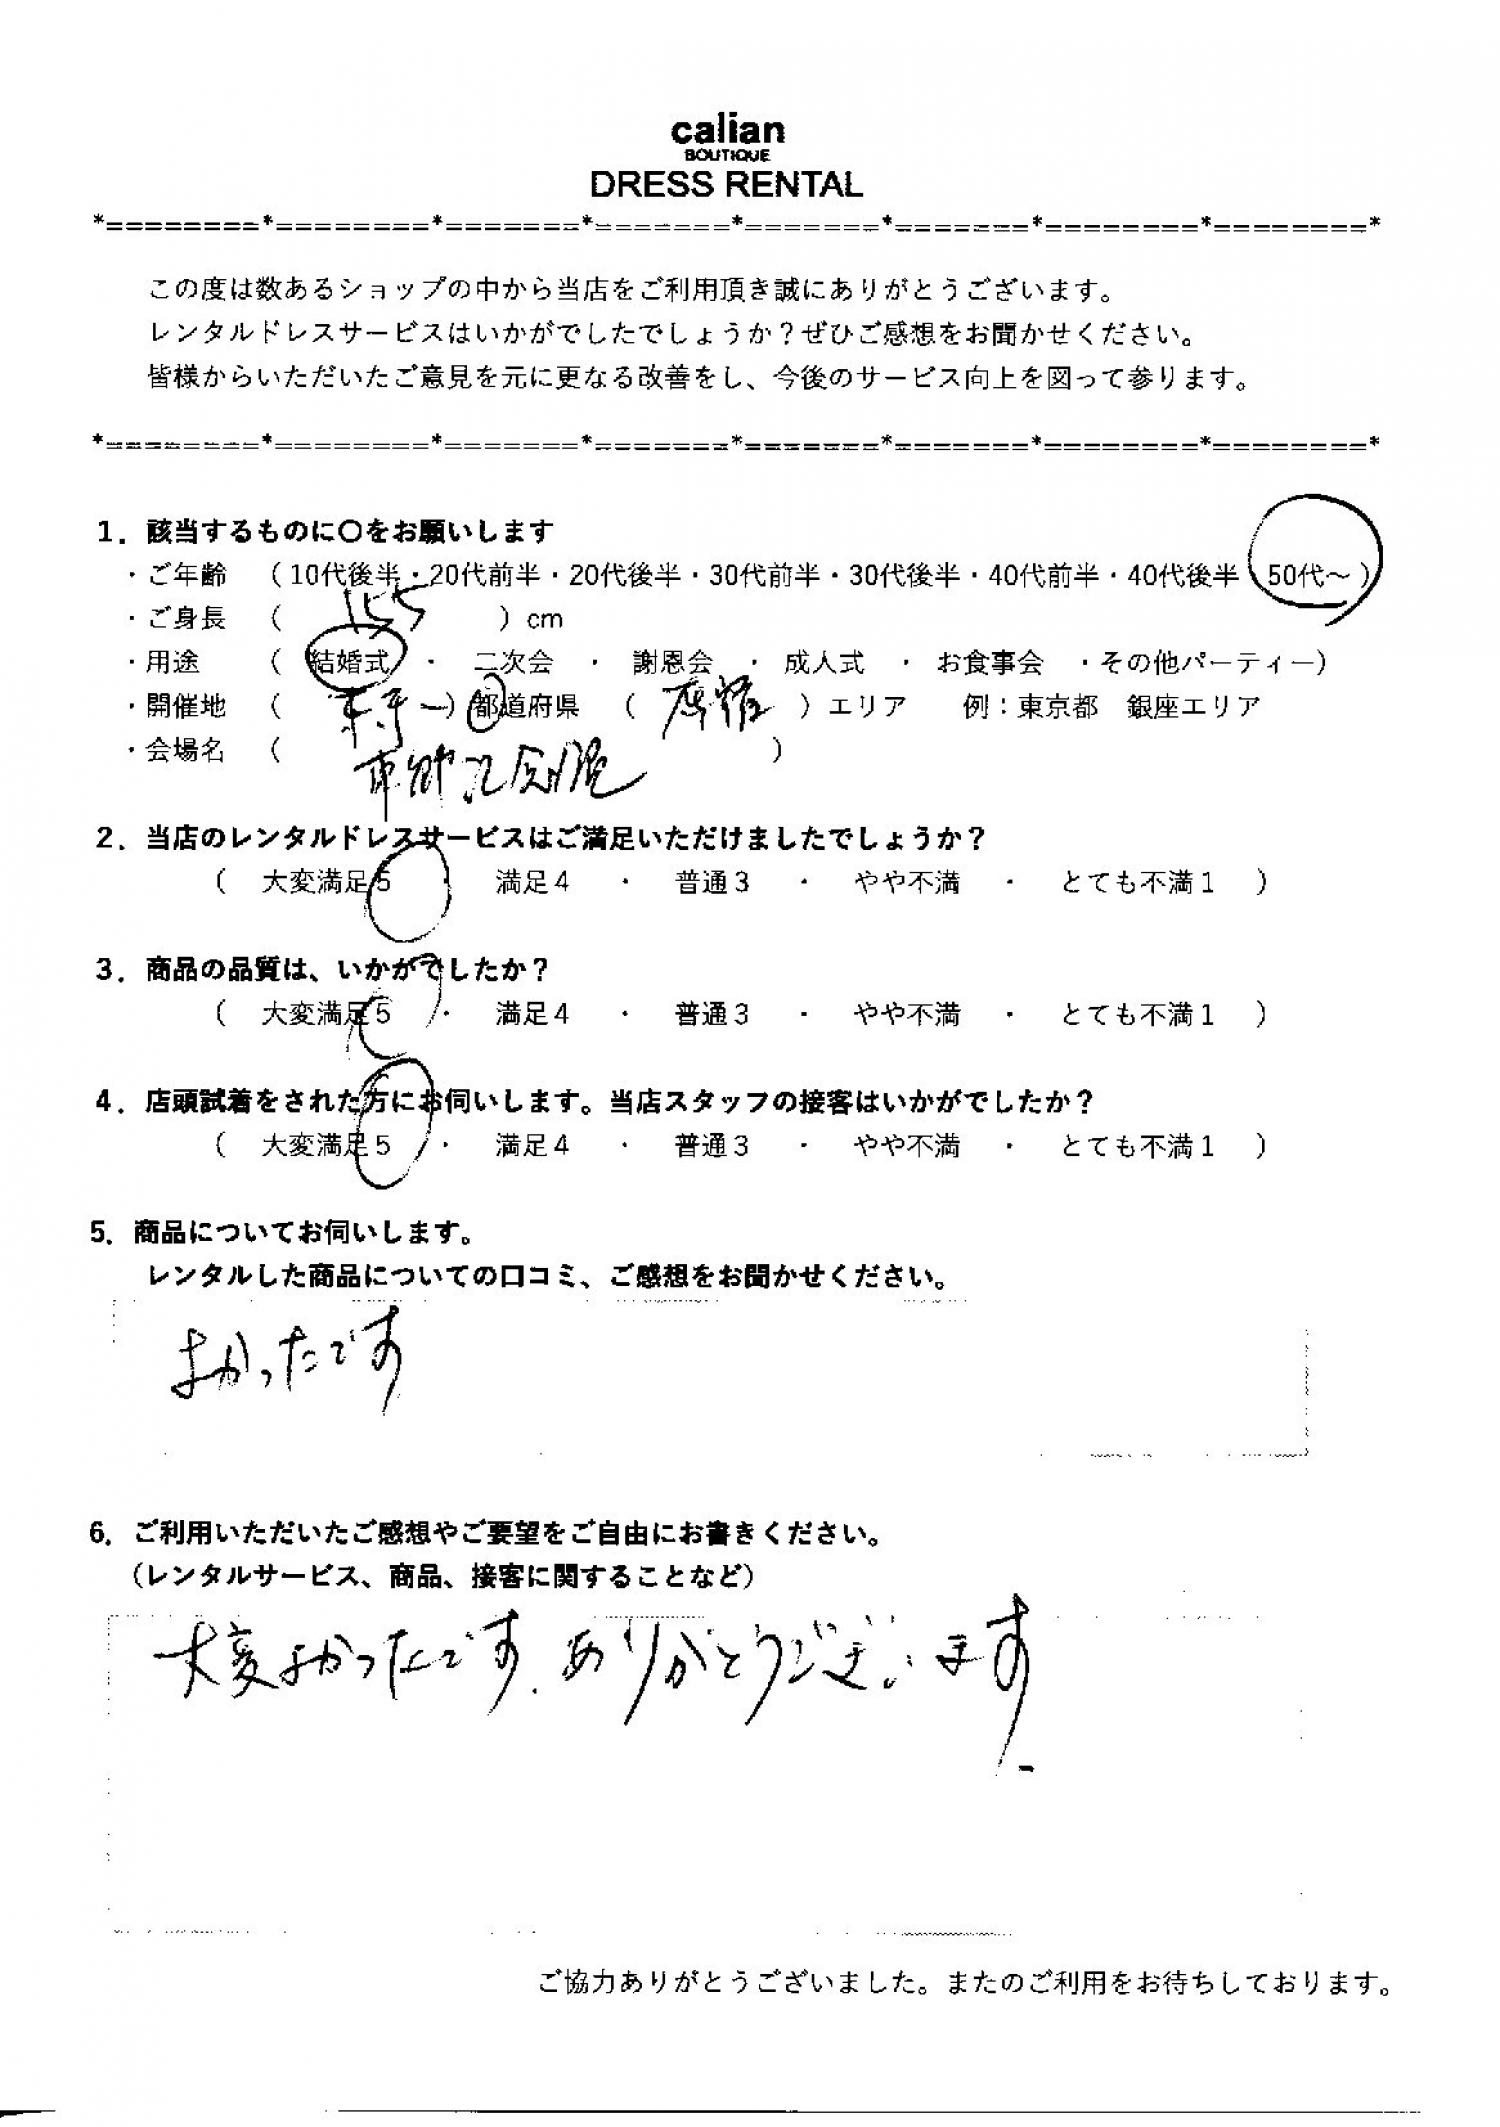 calian
BOUTIQUE
DRESS RENTAL
*========*========*=======*=======*=======*=======*========*========*
この度は数あるショップの中から当店をご利用頂き誠にありがとうございます。
レンタルドレスサービスはいかがでしたでしょうか？ぜひご感想をお聞かせください。
皆様からいただいたご意見を元に更なる改善をし、今後のサービス向上を図って参ります。
*========*========*=======*=======*=======*=======*========*========*
1．該当するものに〇をお願いします
・ご年齢 （10代後半・20代前半・20代後半・30代前半・30代後半・40代前半・40代後半 50代～）
・ご身長 （ 155 ）cm
・用途 （ 結婚式 ・ 二次会 ・ 謝恩会 ・ 成人式 ・ お食事会 ・その他パーティー）
・開催地 （ ）都道府県 （ 原宿 ）エリア 例：東京都 銀座エリア
・会場名 （ 東郷記念館 ）
2．当店のレンタルドレスサービスはご満足いただけましたでしょうか？
（ 大変満足5 ・ 満足4 ・ 普通3 ・ やや不満 ・ とても不満1 ）
3．商品の品質は、いかがでしたか？
（ 大変満足5 ・ 満足4 ・ 普通3 ・ やや不満 ・ とても不満1 ）
4．店頭試着をされた方にお伺いします。当店スタッフの接客はいかがでしたか？
（ 大変満足5 ・ 満足4 ・ 普通3 ・ やや不満 ・ とても不満1 ）
5．商品についてお伺いします。
レンタルした商品についての口コミ、ご感想をお聞かせください。
よかったです
6．ご利用いただいたご感想やご要望をご自由にお書きください。
（レンタルサービス、商品、接客に関することなど）
大変よかったです．ありがとうございます
ご協力ありがとうございました。またのご利用をお待ちしております。